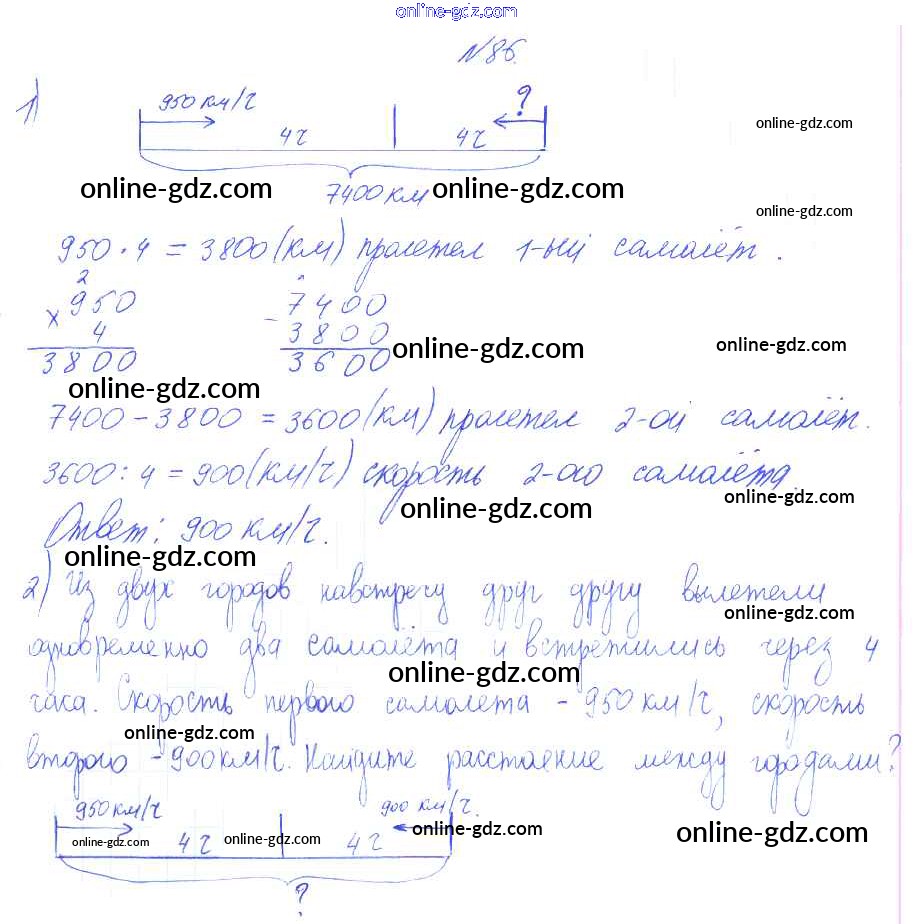 online-gdz.com
№86.
1)
950 км/ч ?
online-gdz.com
4ч 4ч
online-gdz.com 7400 км online-gdz.com
online-gdz.com
950 · 4 = 3800 (км) пролетел 1-ый самолёт.
2
× 950 - 7400
4 3800
3800 3600 online-gdz.com online-gdz.com
online-gdz.com
7400 - 3800 = 3600 (км) пролетел 2-ой самолёт.
3600 : 4 = 900 (км/ч) скорость 2-ого самолёта
online-gdz.com
online-gdz.com
Ответ: 900 км/ч.
online-gdz.com
2) Из двух городов навстречу друг другу вылетели
online-gdz.com
одновременно два самолёта и встретились через 4
online-gdz.com
часа. Скорость первого самолета - 950 км/ч, скорость
online-gdz.com
второго - 900 км/ч. Найдите расстояние между городами?
950 км/ч 900 км/ч.
online-gdz.com online-gdz.com
online-gdz.com 4ч online-gdz.com 4ч
?